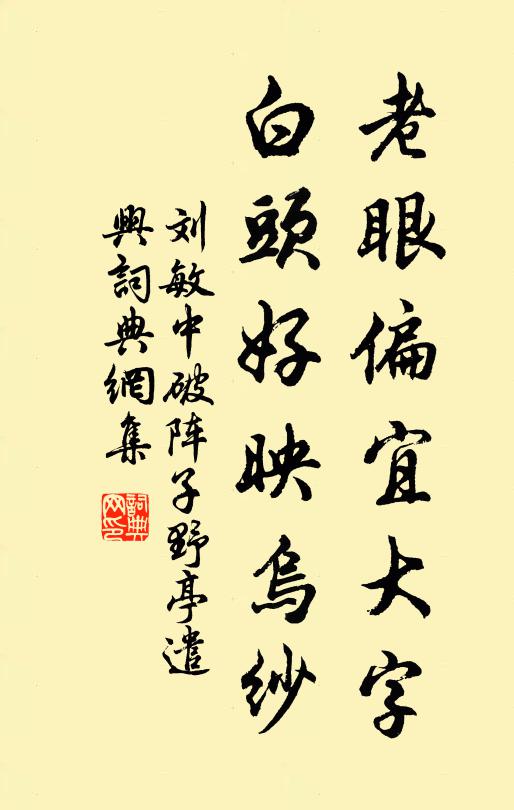 老眼偏宜大字
白頭好映烏紗
刘敏中破阵子野亭遣
興詞典網集
詞典网印